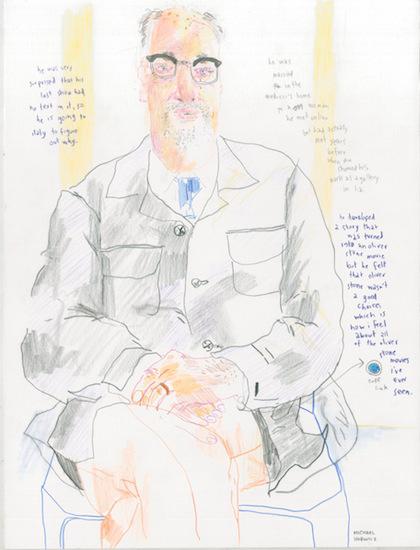 he was very
surprised that his
last show had
no text in it, so
he is going to
italy to figure
out why.
he was
married
in the
medici's home
to a woman
he met online
but had actually
met years
before
when she
showed his
work at a gallery
in l.a.
he developed
a story that
was turned
into an oliver
stone movie
but he felt
that oliver
stone wasn't
a good
choice,
which is
how i feel
about all
of the oliver
stone
movies
i've
ever
seen.
MICHAEL
HURWITZ